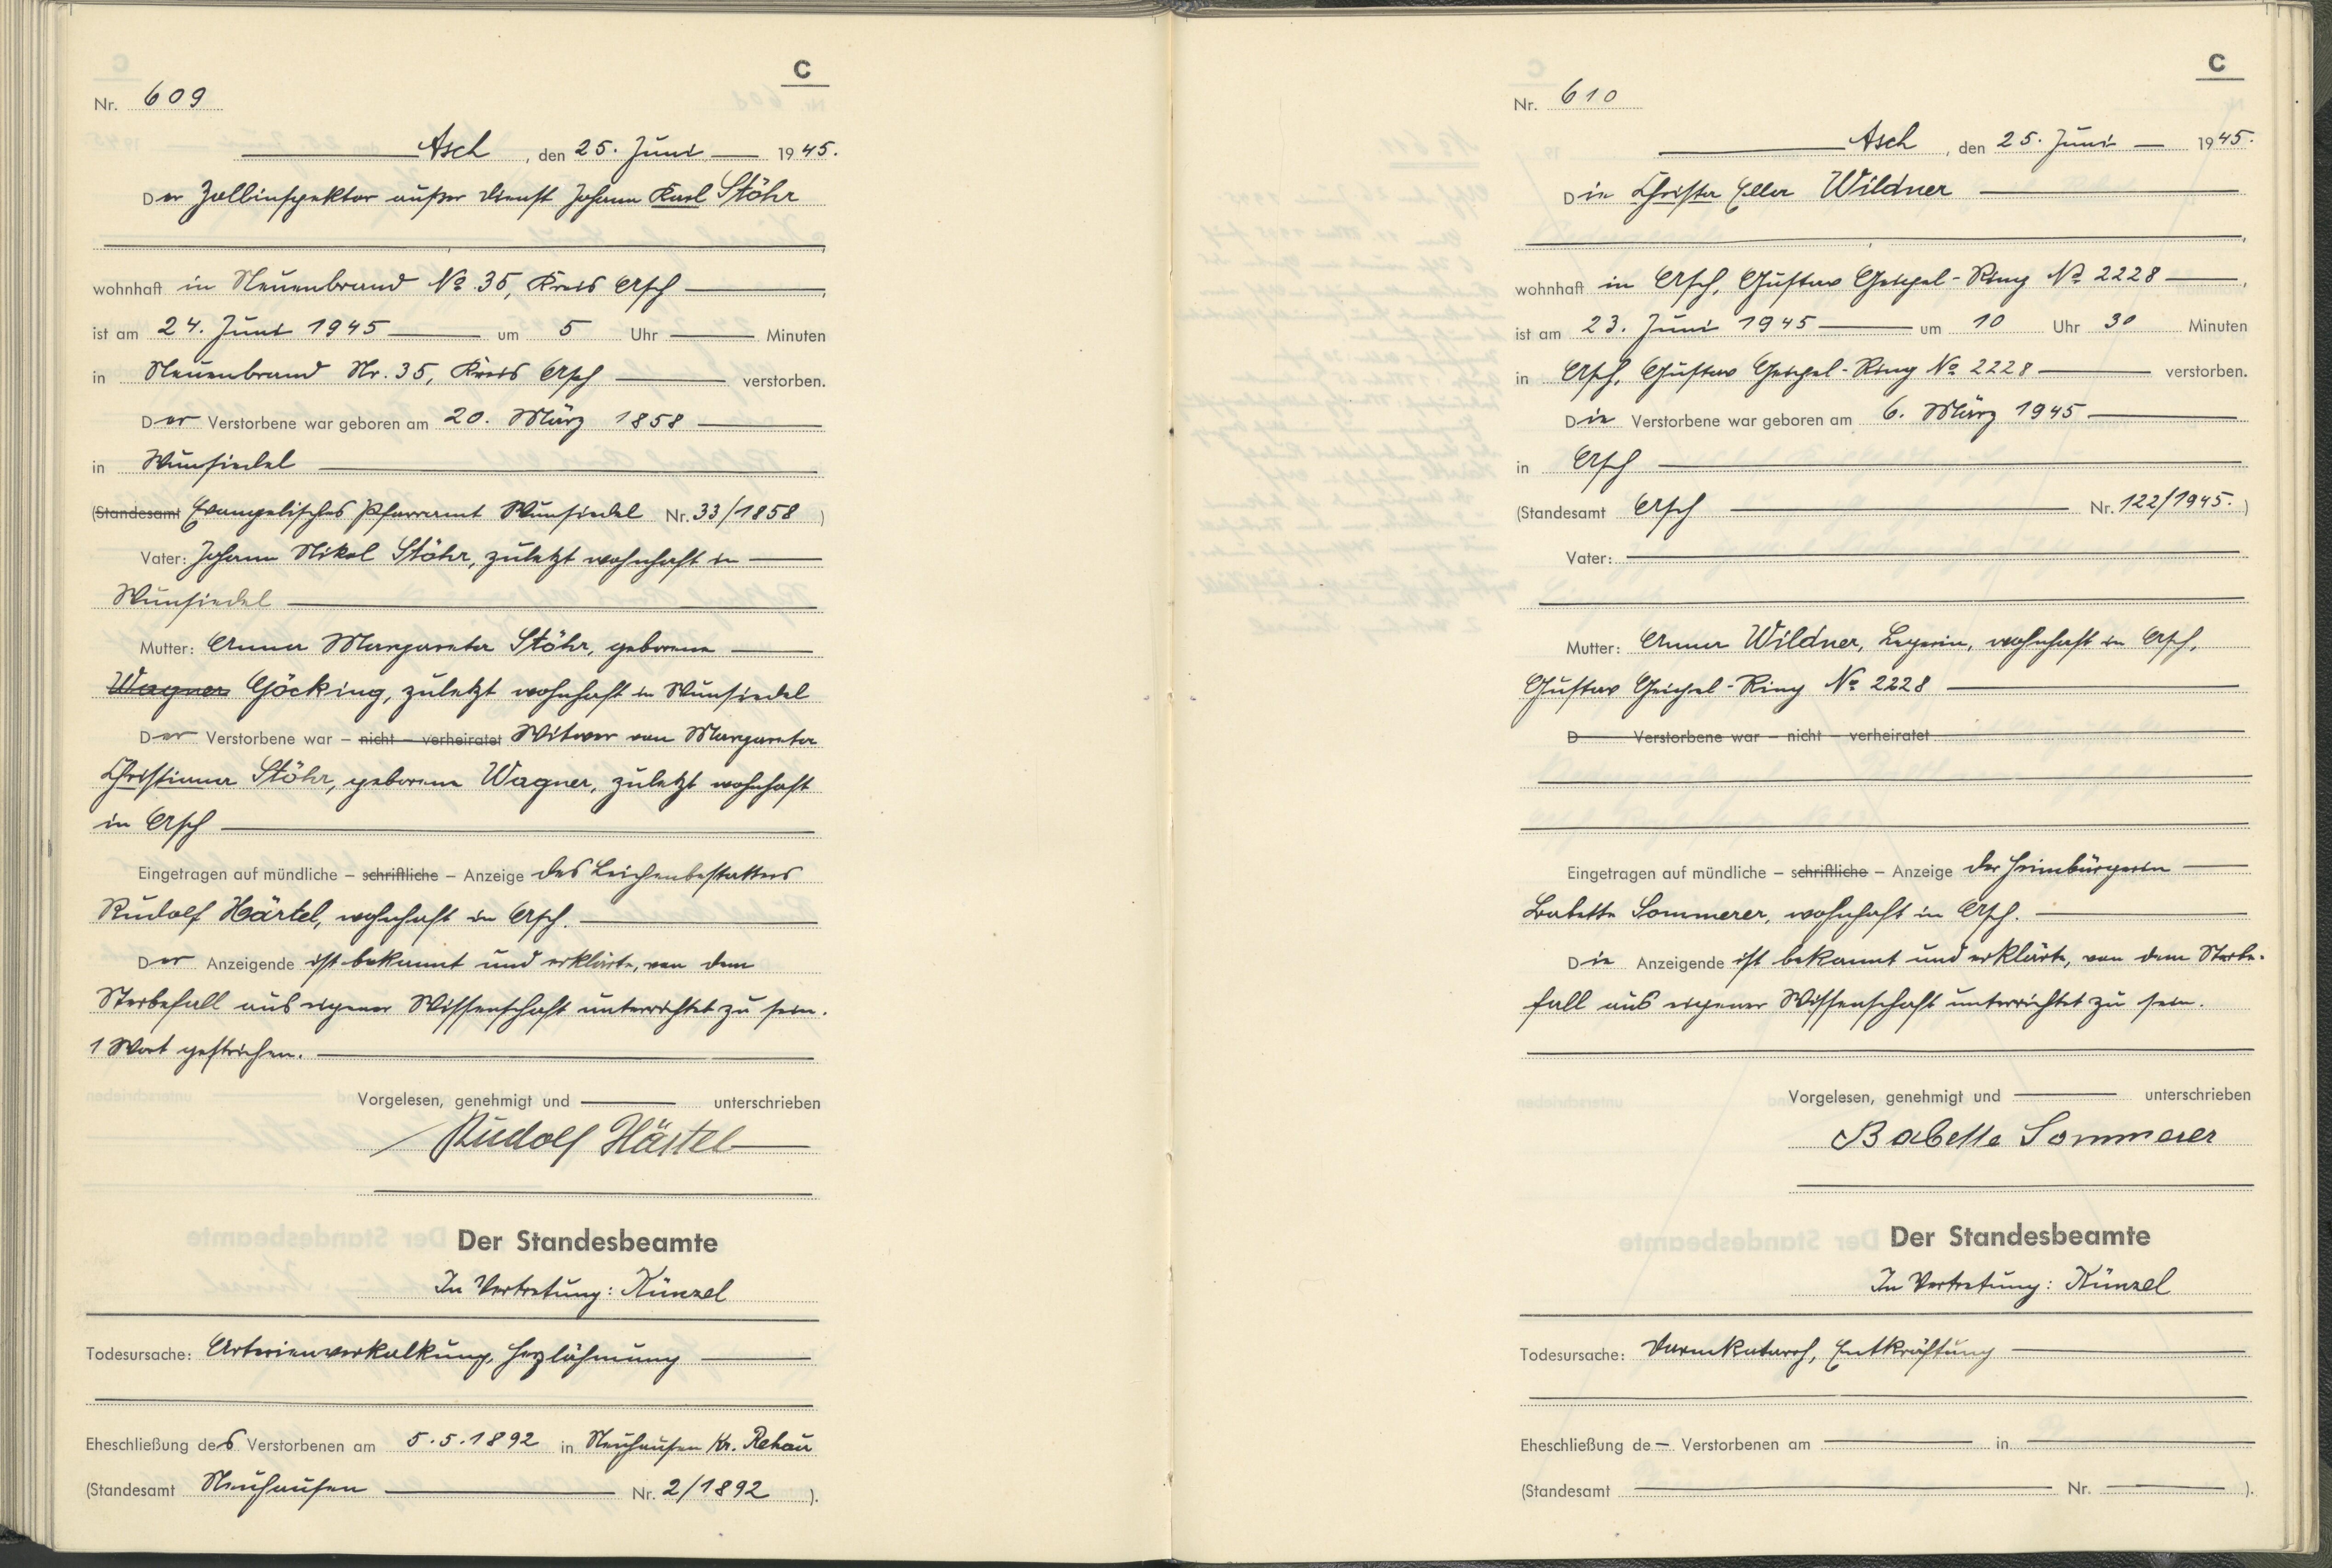 C
Nr. 609
Asch, den 25. Juni 1945.
Der Zollinspektor außer Dienst Johann Karl Stöhr
wohnhaft in Neuenbrand No 35, Kreis Asch,
ist am 24. Juni 1945 um 5 Uhr Minuten
in Neuenbrand Nr. 35, Kreis Asch verstorben.
Der Verstorbene war geboren am 20. März 1858
in Wunsiedel
(Standesamt Evangelisches Pfarramt Wunsiedel Nr. 33/1858)
Vater: Johann Nikol Stöhr, zuletzt wohnhaft in
Wunsiedel
Mutter: Anna Margareta Stöhr, geborene
Wagner Göcking, zuletzt wohnhaft in Wunsiedel
Der Verstorbene war – nicht – verheiratet Witwer von Margareta
Christiana Stöhr, geborene Wagner, zuletzt wohnhaft
in Asch
Eingetragen auf mündliche – schriftliche – Anzeige des Leichenbestatters
Rudolf Härtel, wohnhaft in Asch.
Der Anzeigende ist bekannt und erklärte, von dem
Sterbefall aus eigener Wissenschaft unterrichtet zu sein.
1 Wort gestrichen.
Vorgelesen, genehmigt und unterschrieben
Rudolf Härtel
Der Standesbeamte
In Vertretung: Künzel
Todesursache: Arterienverkalkung, Herzlähmung
Eheschließung des Verstorbenen am 5.5.1892 in Neuhausen Kr. Rehau
(Standesamt Neuhausen Nr. 2/1892).
C
Nr. 610
Asch, den 25. Juni 1945.
Die Christa Ella Wildner
wohnhaft in Asch, Gustav Geipel-Ring No 2228,
ist am 23. Juni 1945 um 10 Uhr 30 Minuten
in Asch, Gustav Geipel-Ring No 2228 verstorben.
Die Verstorbene war geboren am 6. März 1945
in Asch
(Standesamt Asch Nr. 122/1945.)
Vater:
Mutter: Anna Wildner, Legerin, wohnhaft in Asch,
Gustav Geipel-Ring No 2228
D Verstorbene war – nicht – verheiratet
Eingetragen auf mündliche – schriftliche – Anzeige der Heimbürgerin
Babette Sommerer, wohnhaft in Asch.
Die Anzeigende ist bekannt und erklärte, von dem Sterbe-
fall aus eigener Wissenschaft unterrichtet zu sein.
Vorgelesen, genehmigt und unterschrieben
Babette Sommerer
Der Standesbeamte
In Vertretung: Künzel
Todesursache: Darmkatarrh, Entkräftung
Eheschließung de Verstorbenen am in
(Standesamt Nr. ).